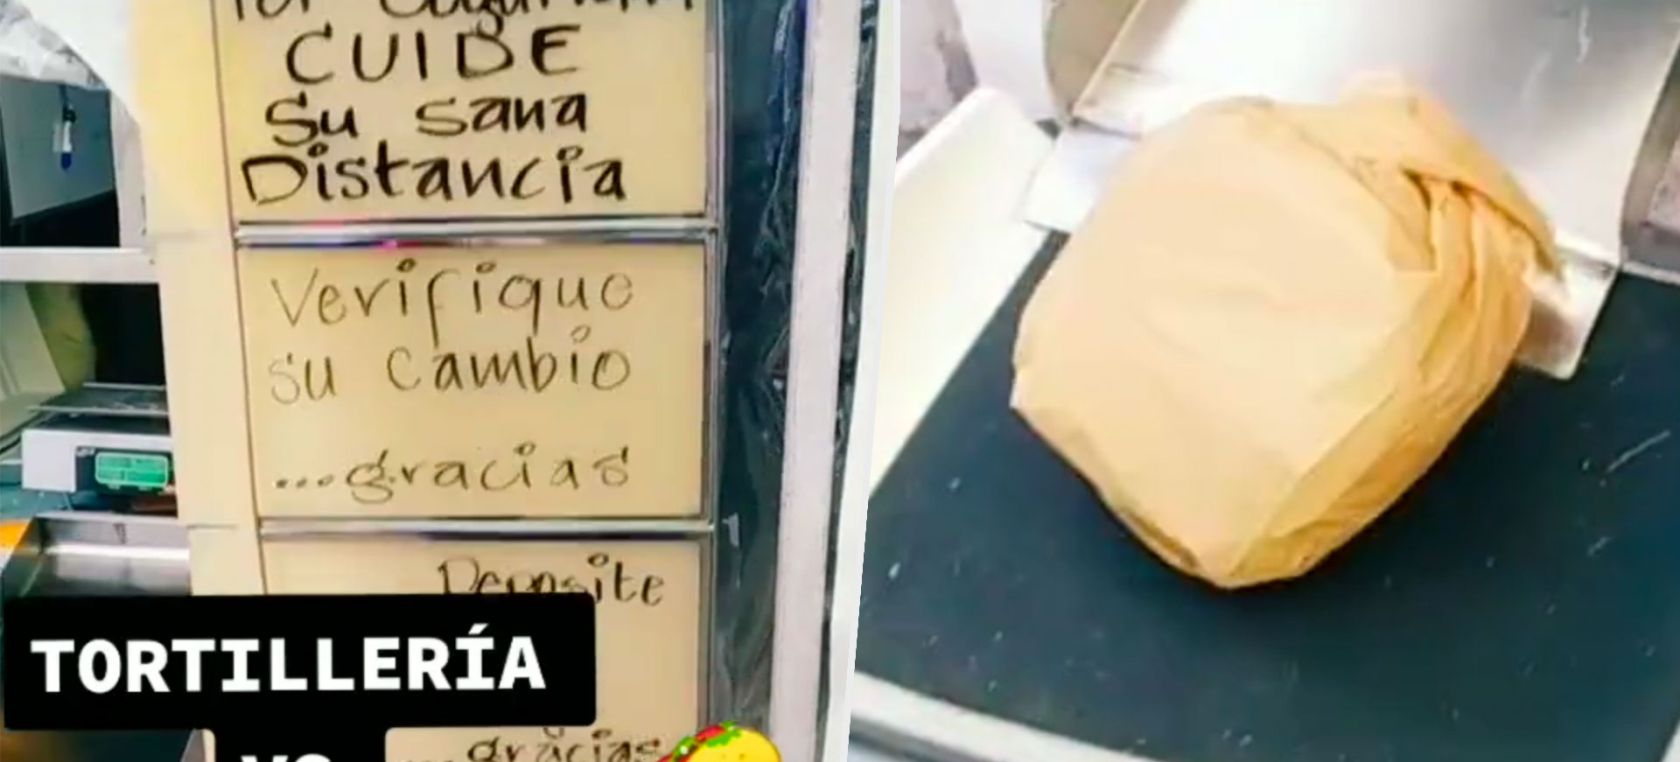 Por Seguridad
CUIDE
Su sana
Distancia
Verifique
su cambio
...gracias
Deposite
...gracias
TORTILLERÍA